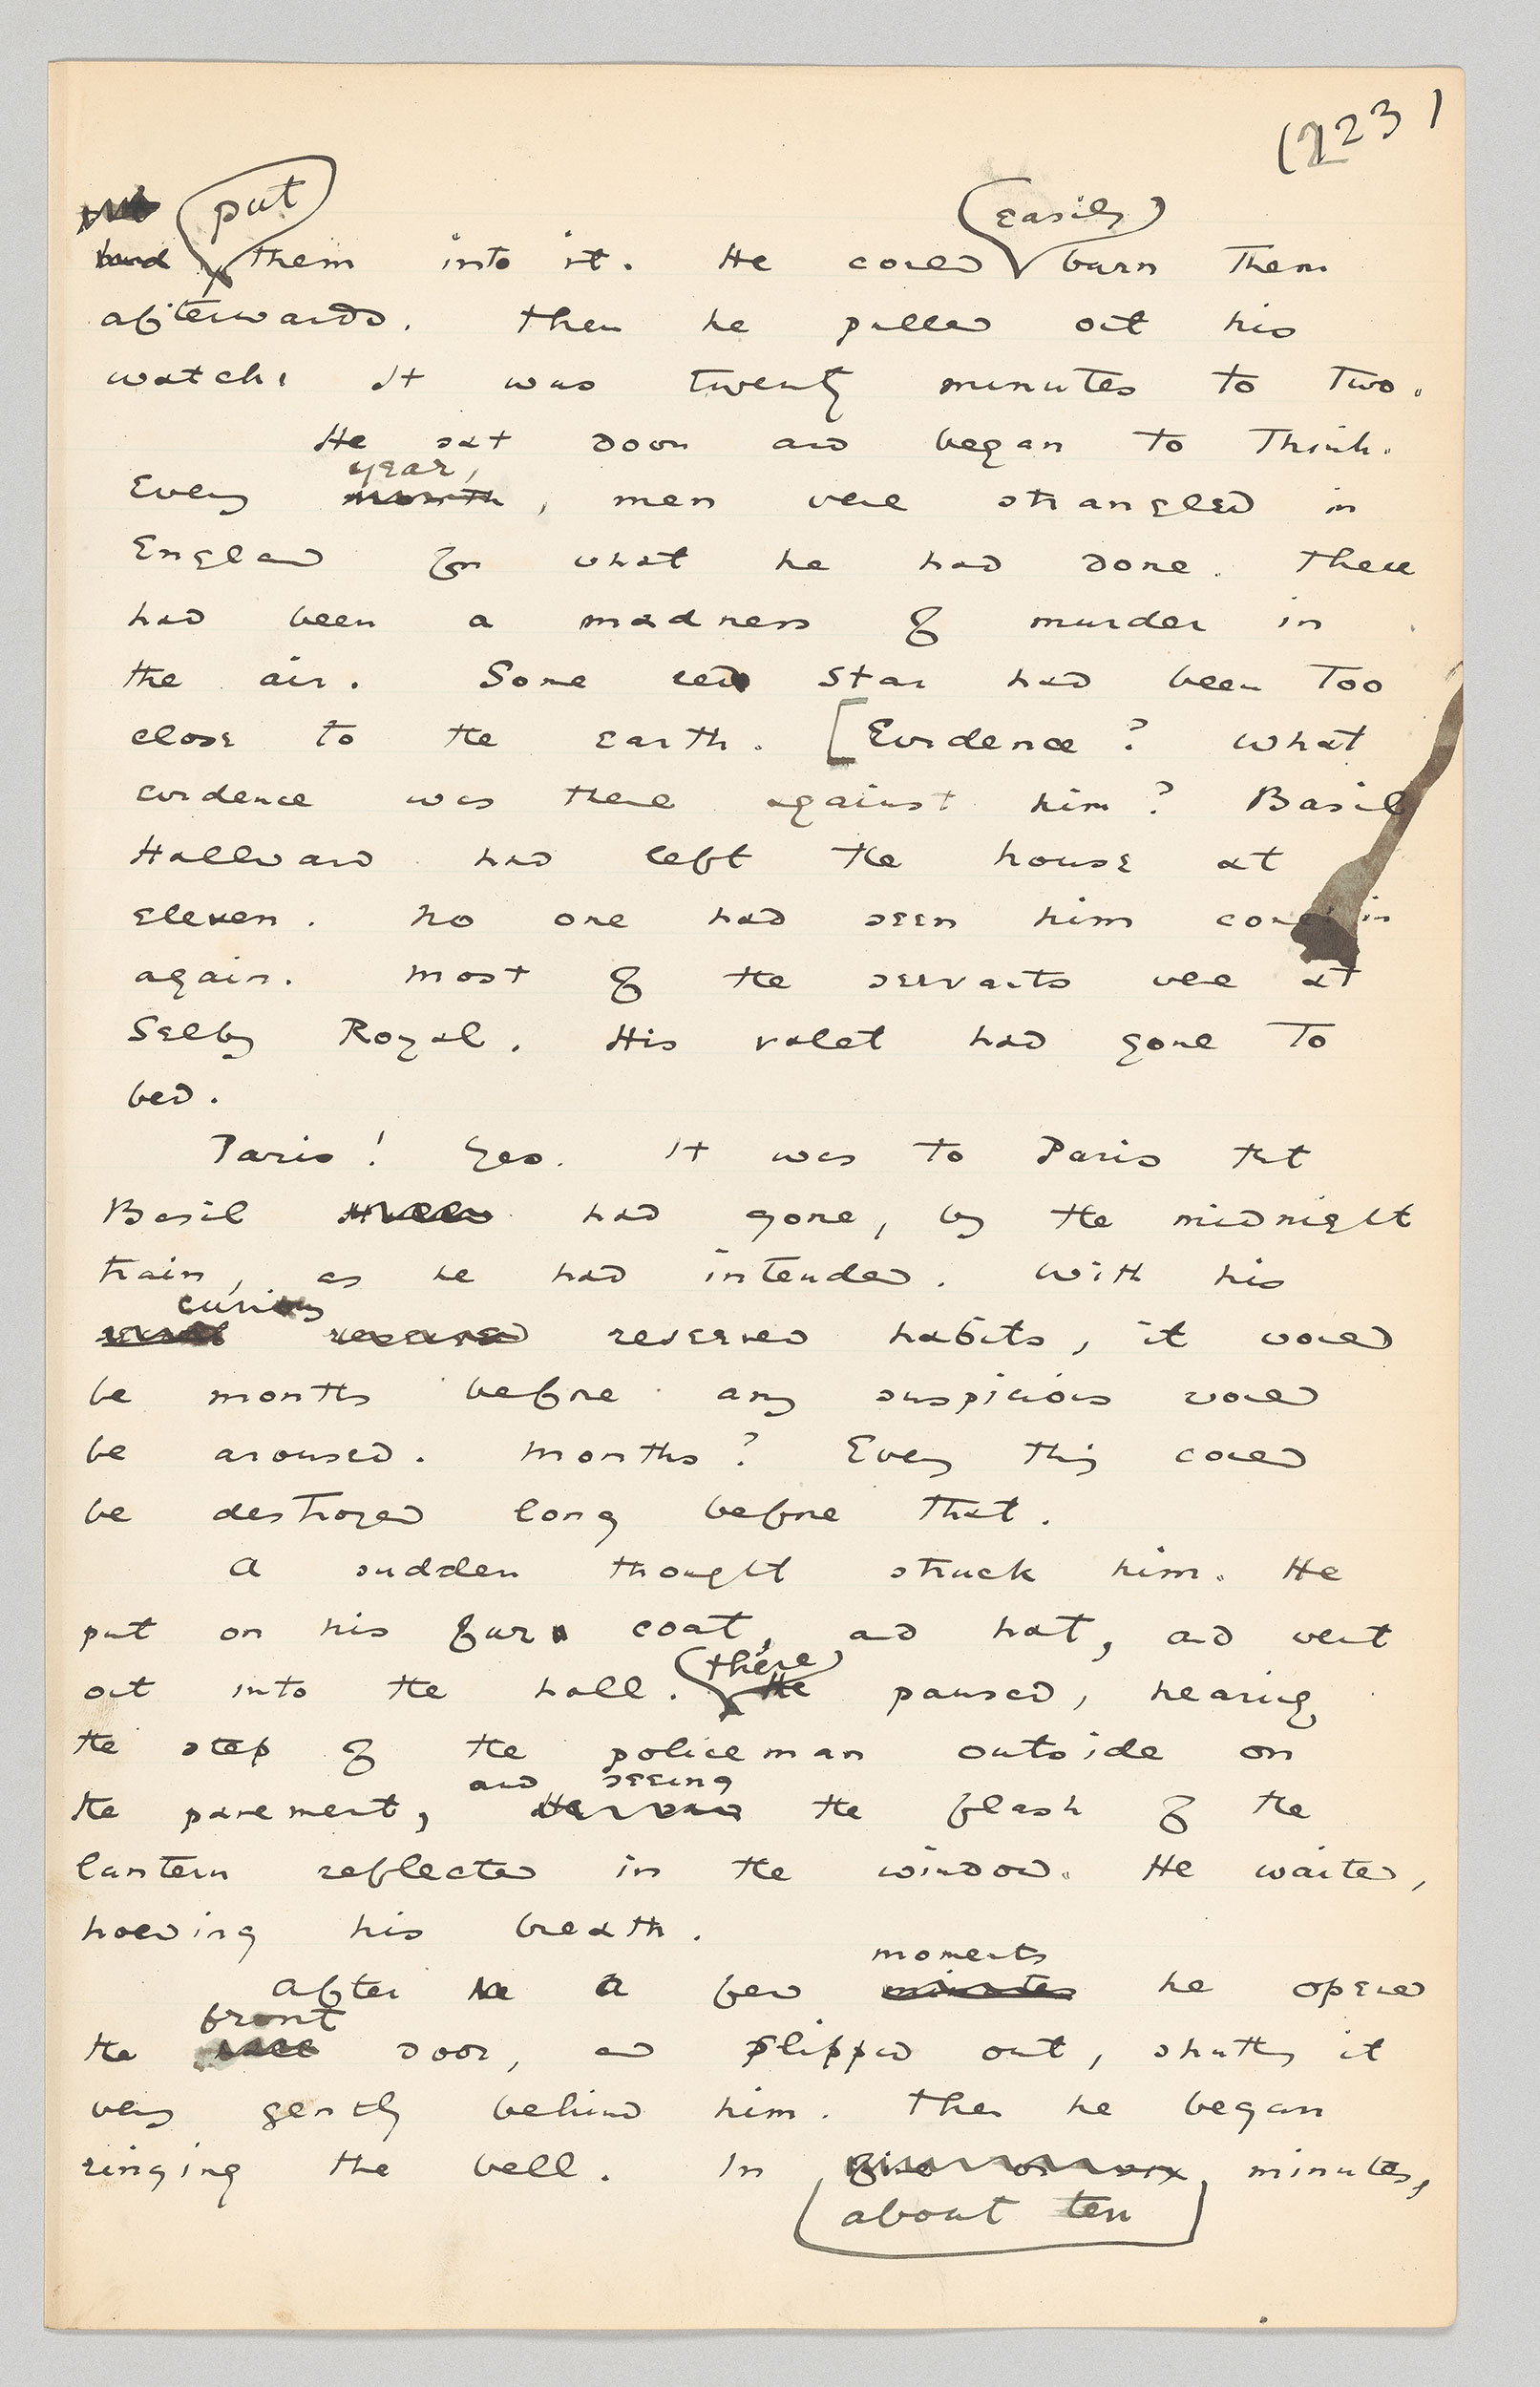 (223)
put easily
them into it. He could burn them
afterwards. Then he pulled out his
watch. It was twenty minutes to two.
He sat down and began to think.
year,
Every month, men were strangled in
England for what he had done. There
had been a madness of murder in
the air. Some red star had been too
close to the earth. [Evidence? What
evidence was there against him? Basil
Hallward had left the house at
eleven. No one had seen him come in
again. Most of the servants were at
Selby Royal. His valet had gone to
bed.
Paris! Yes. It was to Paris that
Basil had gone, by the midnight
train, as he had intended. With his
curious
reserved reserved habits, it would
be months before any suspicions would
be aroused. Months? Every thing could
be destroyed long before that.
A sudden thought struck him. He
put on his fur coat, and hat, and went
there
out into the hall. He paused, hearing
the step of the policeman outside on
and seeing
the pavement, the flash of the
lantern reflected in the window. He waited,
holding his breath.
moments
After he a few minutes he opened
front
the door, and slipped out, shutting it
very gently behind him. Then he began
ringing the bell. In five or six minutes,
about ten